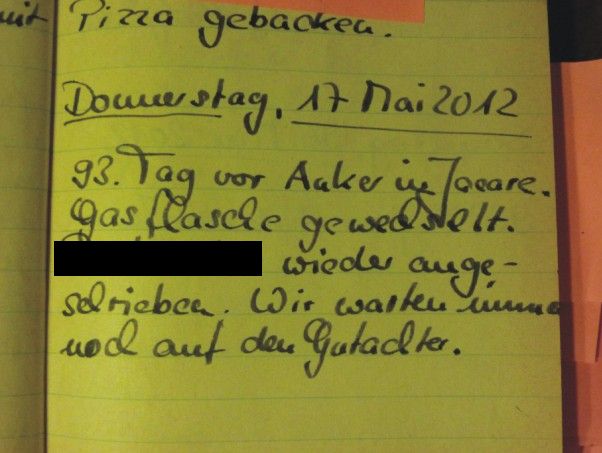 mit Pizza gebacken.
Donnerstag, 17 Mai 2012
93. Tag vor Anker in Jacare.
Gasflasche gewechselt.
wieder ange-
schrieben. Wir warten imme
noch auf den Gutachter.